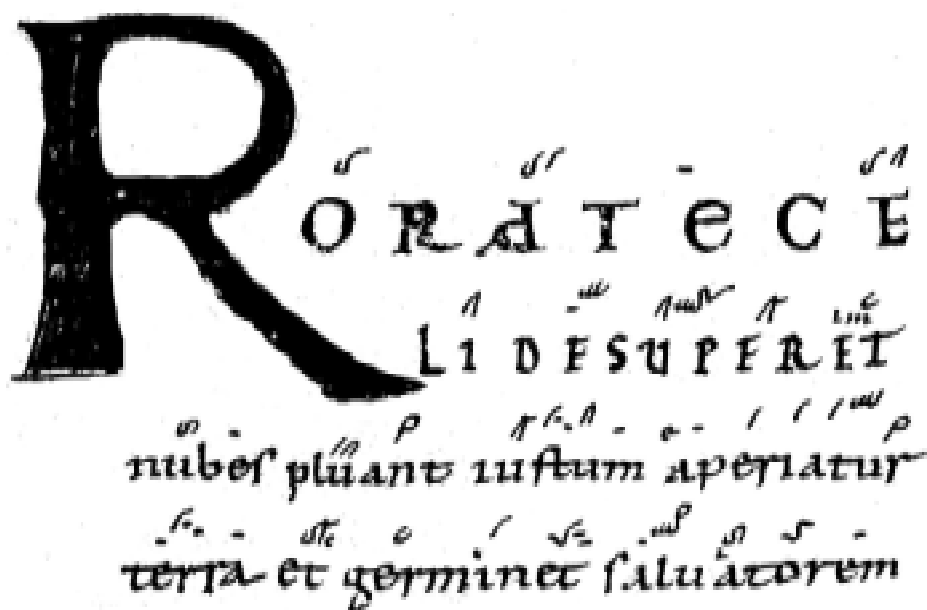 RORATE CE
LI DESUPER ET
nubeſ pluant iuſtum aperiatur
terra et germinet ſaluatorem